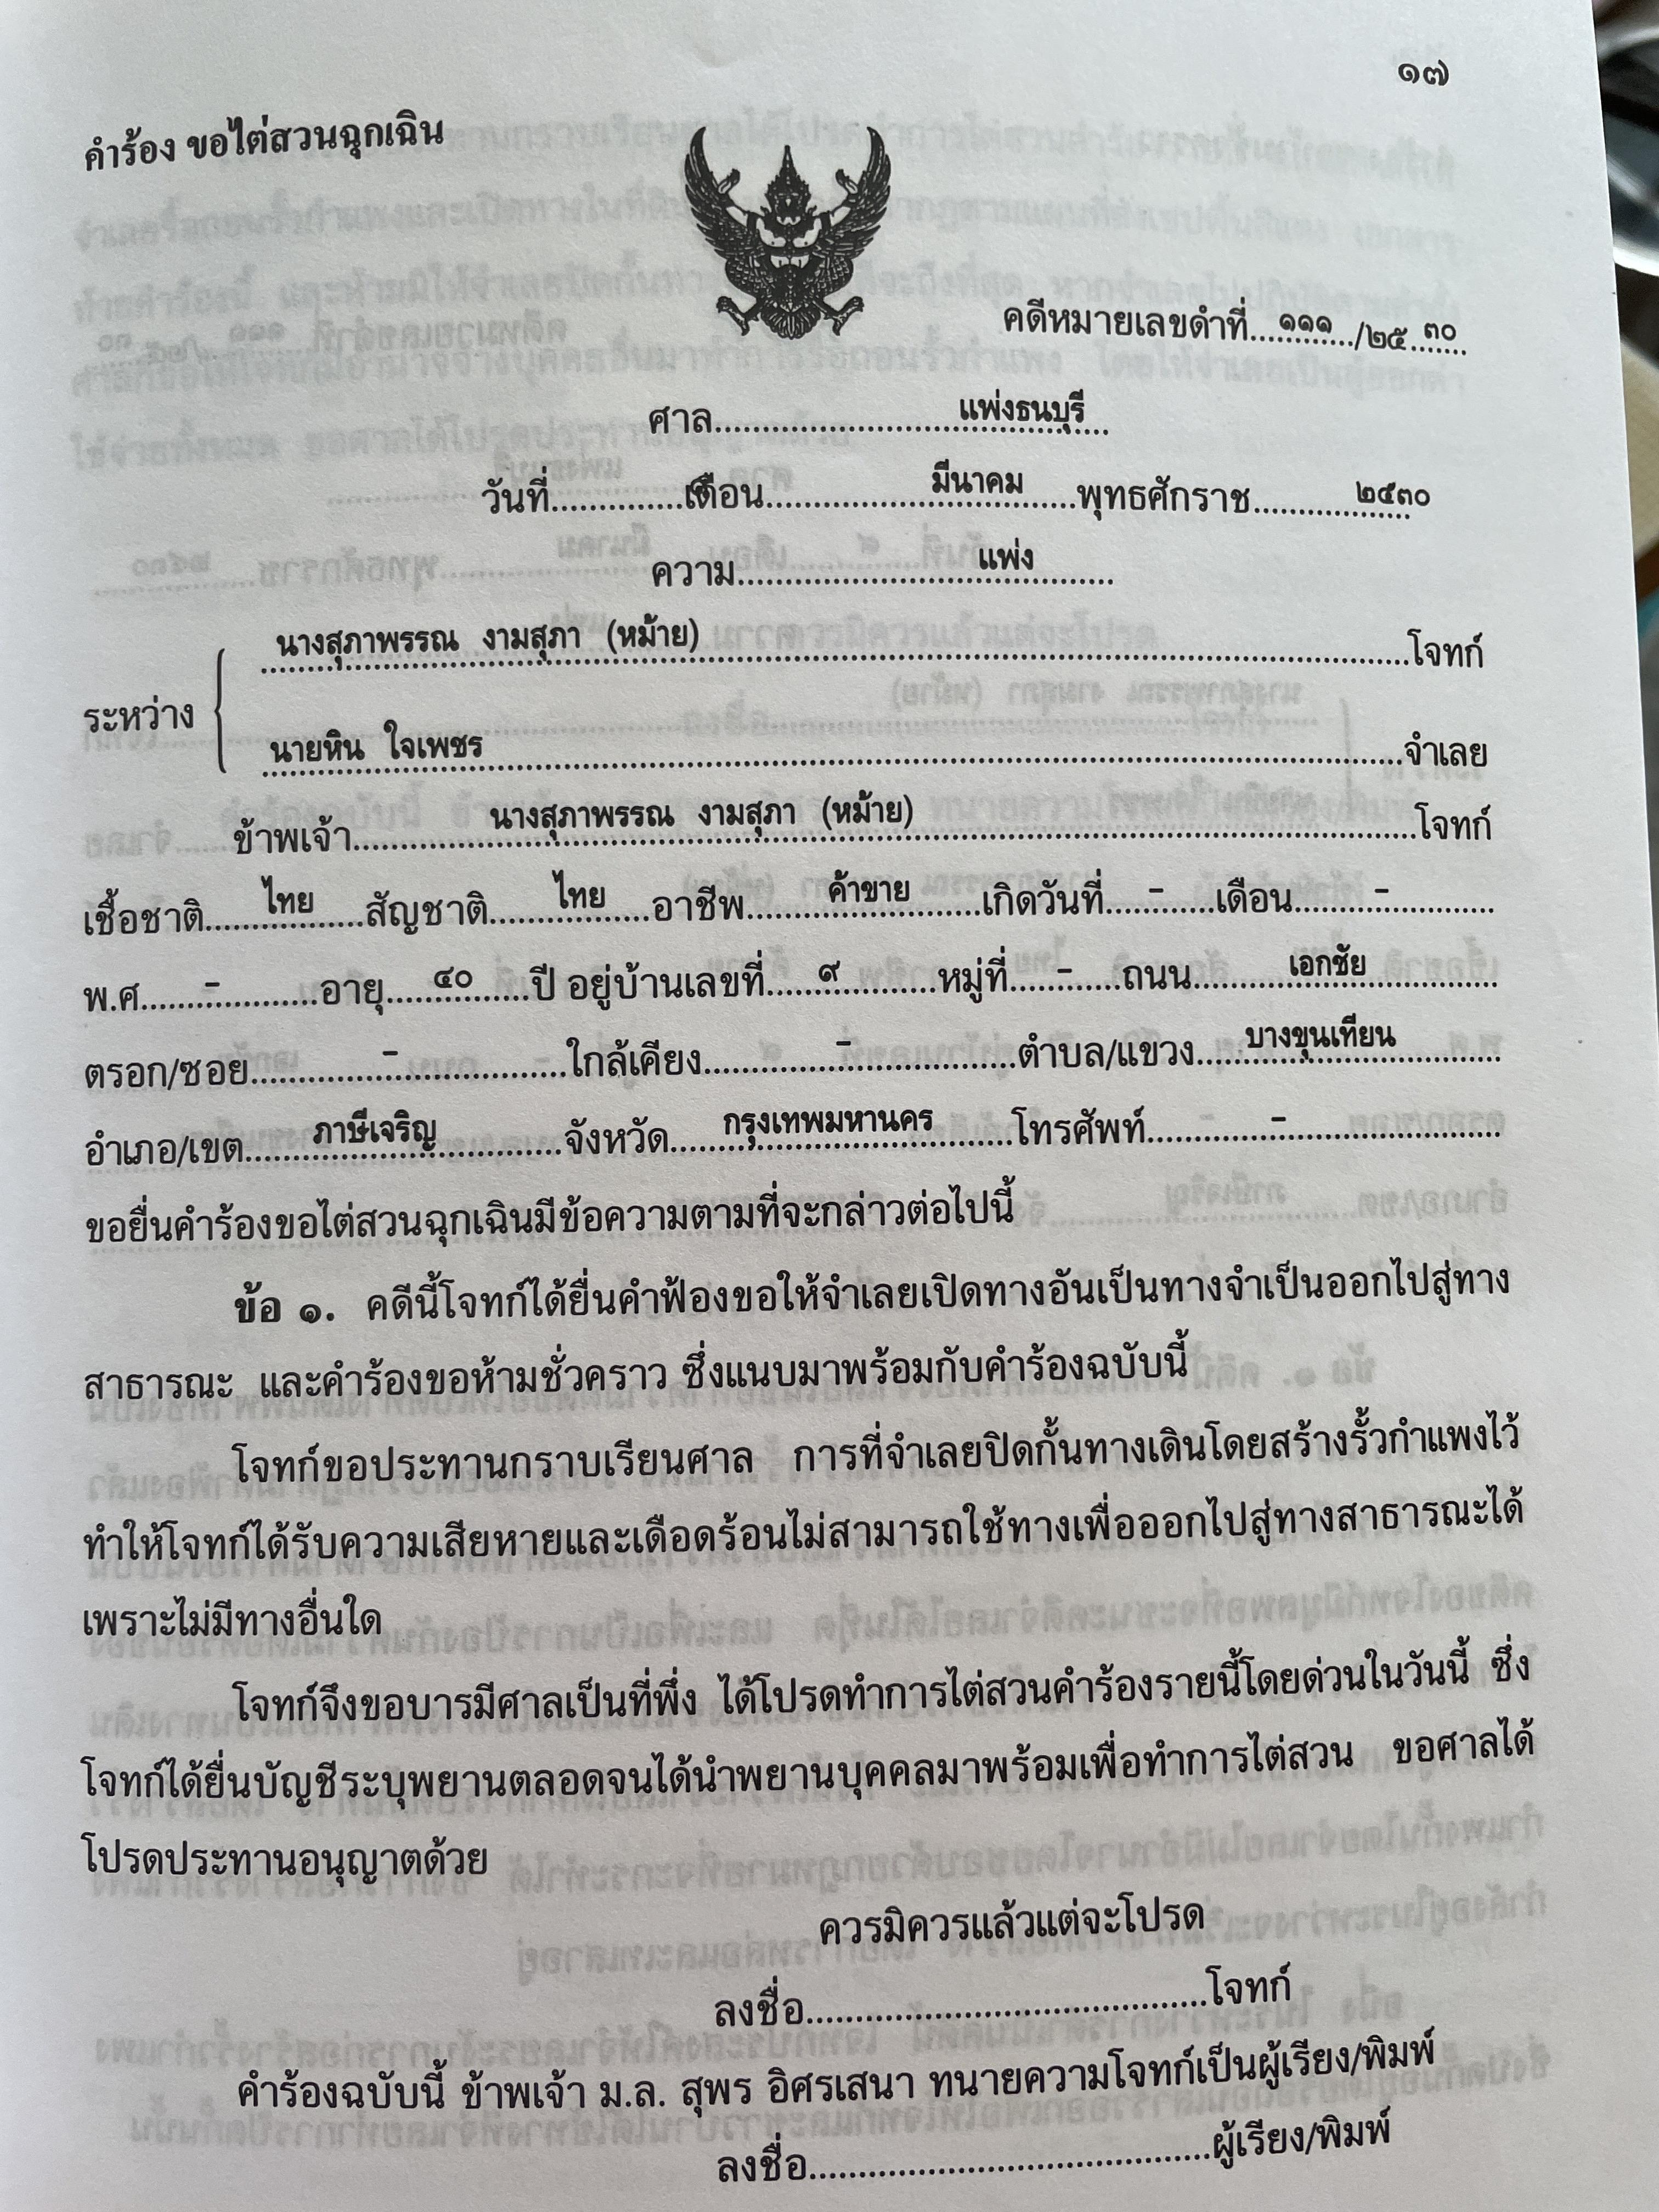 ๑๗
คำร้อง ขอไต่สวนฉุกเฉิน
คดีหมายเลขดำที่....๑๑๑..../๒๕...๓๐...
ศาล............แพ่งธนบุรี............
วันที่............เดือน............มีนาคม............พุทธศักราช............๒๕๓๐
ความ............แพ่ง............
นางสุภาพรรณ งามสุภา (หม้าย)............โจทก์
ระหว่าง
นายหิน ใจเพชร............จำเลย
ข้าพเจ้า............นางสุภาพรรณ งามสุภา (หม้าย)............โจทก์
เชื้อชาติ......ไทย......สัญชาติ......ไทย......อาชีพ......ค้าขาย......เกิดวันที่......–......เดือน......–......
พ.ศ.......–......อายุ......๔๐......ปี อยู่บ้านเลขที่......๙......หมู่ที่......–......ถนน......เอกชัย......
ตรอก/ซอย......–......ใกล้เคียง......–......ตำบล/แขวง......บางขุนเทียน......
อำเภอ/เขต......ภาษีเจริญ......จังหวัด......กรุงเทพมหานคร......โทรศัพท์......–......
ขอยื่นคำร้องขอไต่สวนฉุกเฉินมีข้อความตามที่จะกล่าวต่อไปนี้
ข้อ ๑. คดีนี้โจทก์ได้ยื่นคำฟ้องขอให้จำเลยเปิดทางอันเป็นทางจำเป็นออกไปสู่ทาง
สาธารณะ และคำร้องขอห้ามชั่วคราว ซึ่งแนบมาพร้อมกับคำร้องฉบับนี้
โจทก์ขอประทานกราบเรียนศาล การที่จำเลยปิดกั้นทางเดินโดยสร้างรั้วกำแพงไว้
ทำให้โจทก์ได้รับความเสียหายและเดือดร้อนไม่สามารถใช้ทางเพื่อออกไปสู่ทางสาธารณะได้
เพราะไม่มีทางอื่นใด
โจทก์จึงขอบารมีศาลเป็นที่พึ่ง ได้โปรดทำการไต่สวนคำร้องรายนี้โดยด่วนในวันนี้ ซึ่ง
โจทก์ได้ยื่นบัญชีระบุพยานตลอดจนได้นำพยานบุคคลมาพร้อมเพื่อทำการไต่สวน ขอศาลได้
โปรดประทานอนุญาตด้วย
ควรมิควรแล้วแต่จะโปรด
ลงชื่อ............โจทก์
คำร้องฉบับนี้ ข้าพเจ้า ม.ล. สุพร อิศรเสนา ทนายความโจทก์เป็นผู้เรียง/พิมพ์
ลงชื่อ............ผู้เรียง/พิมพ์